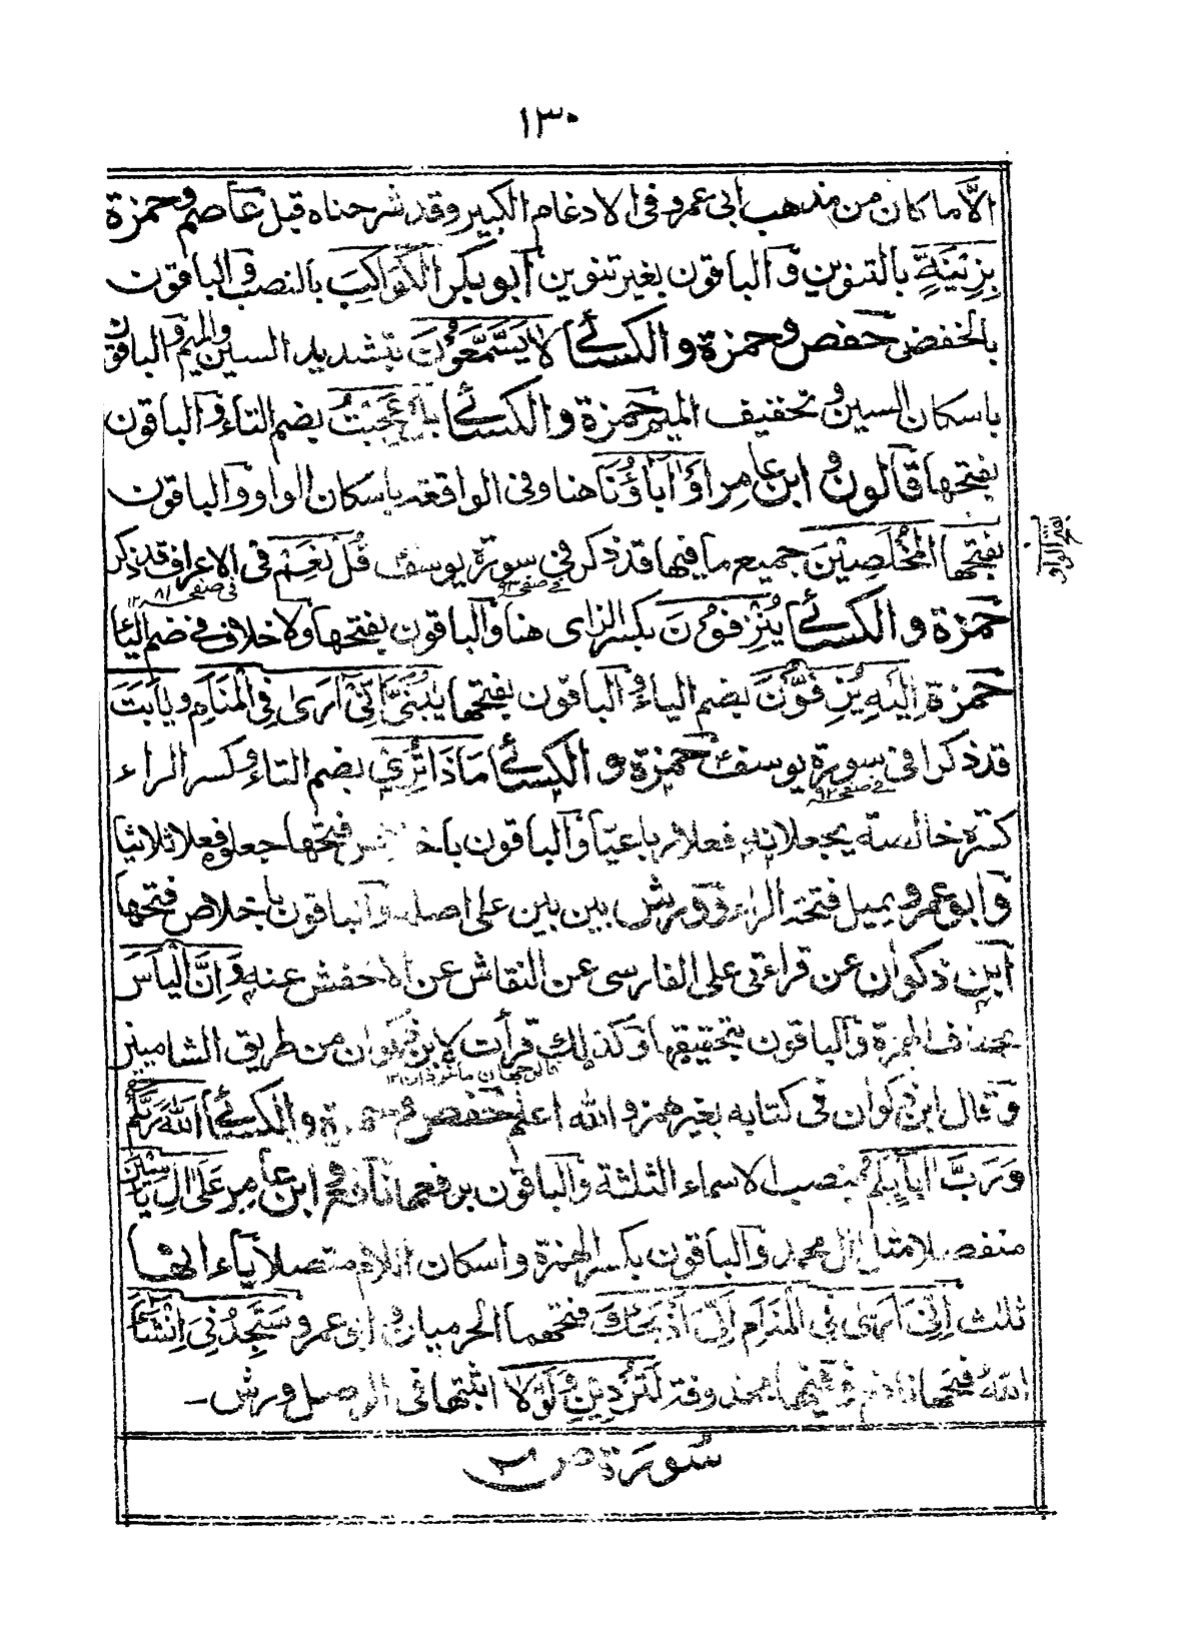 ١٣٠
الّا ما كان من مذهب ابى عمرو فى الادغام الكبير وقد شرحناه قبل عاصم وحمزة
بِزِيْنَةٍ بالتنوين والباقون بغير تنوين ابو بكر الْكَوَاكِبَ بالنصب والباقون
بالخفض حفص وحمزة والكسائى لا يَسَّمَّعُوْنَ بتشديد السين والميم والباقون
باسكان السين وتخفيف الميم حمزة والكسائى بل عَجِبْتُ بضم التاء والباقون
بفتحها قالون وابن عامر اَوْ اٰبَاؤُنَا هنا وفى الواقعة باسكان الواو والباقون
بفتح الواو
بفتحها الْمُخْلَصِيْنَ جميع ما فيها قد ذكر فى سورة يوسف قُلْ نَعَمْ فى الاعراف قد ذكر
فى صفحه ٨١ ١٢
حمزة والكسائى يُنْزِفُوْنَ بكسر الزاى هنا والباقون بفتحها ولا خلاف فى ضم اليا
حمزة اِلَيْهِ يُزِفُّوْنَ بضم الياء والباقون بفتحها يٰبُنَيَّ اِنِّىْ اَرٰى فِى الْمَنَامِ ويٰاَبَتَ
قد ذكرا فى سورة يوسف حمزة والكسائى مَاذَا تُرِىْ بضم التاء وكسر الراء
كسرة خالصة يجعلانه فعلا رباعيّا والباقون فتحها جعلوه فعلا ثلاثيا
وابو عمرو يميل فتحة الراء وورش بين بين على اصله والباقون باخلاص فتحها
ابن ذكوان عن قراءتى على الفارسى عن النقاش عن الاخفش عنه وَاِنَّ الْيَاسَ
بحذف الهمزة والباقون بتحقيقها وكذلك قرأت لابن ذكوان من طريق الشاميين
وقال ابن ذكوان فى كتابه بغير همز والله اعلم حفص وحمزة والكسائى اَللّٰهَ رَبَّكُمْ
وَرَبَّ اٰبَآئِكُمُ بنصب الاسماء الثلثة والباقون برفعها نافع وابن عامر عَلٰى اٰلِ يَاسِيْنَ
منفصلا مثل اٰل محمد والباقون بكسر الهمزة واسكان اللام متصلا ياءاتها
ثلث اِنِّىَ اَرٰى فِى الْمَنَامِ اَنِّىَ اَذْبَحُكَ فتحهما الحرميان وابو عمرو سَتَجِدُنِىَ اِنْشَآءَ
اللّٰهُ فتحها نافع وفيها محذوفة لَتُرْدِيْنِ وَلَوْلَا اثبتها فى الوصل ورش ـ
سورة ص